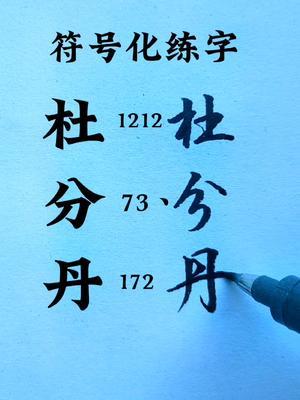 符号化练字
杜 1212 杜
分 73、 分
丹 172 丹